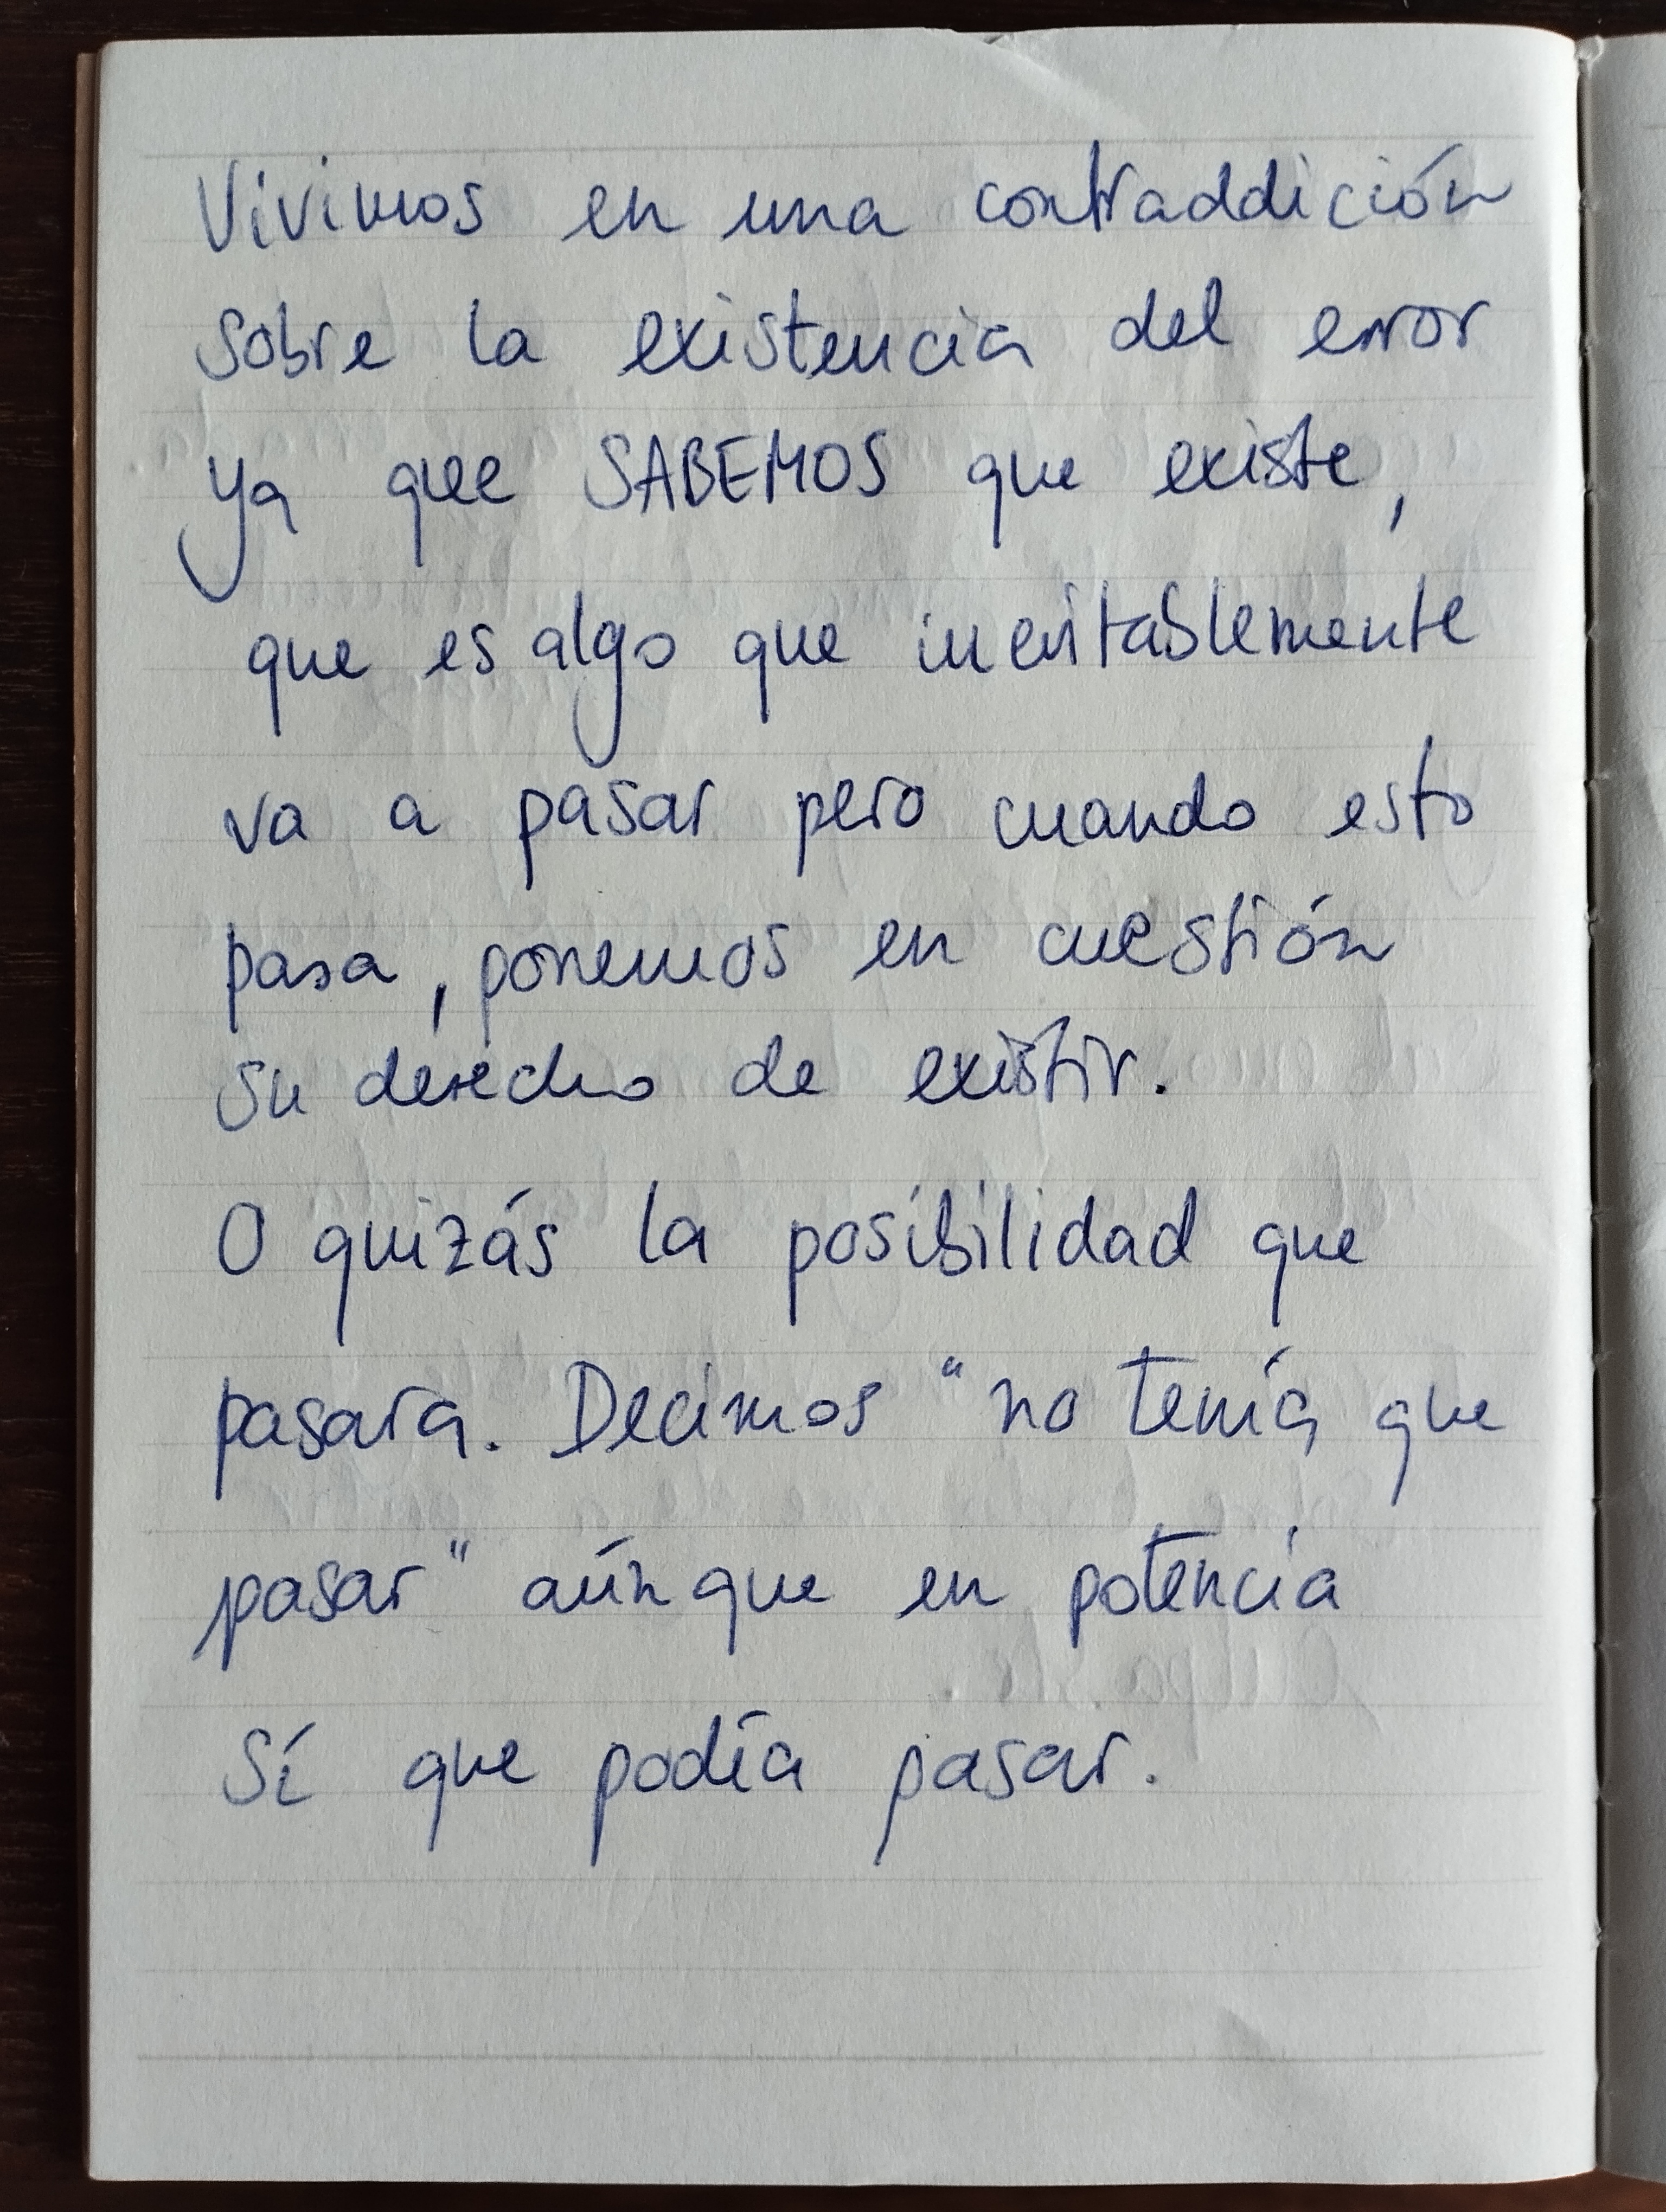 Vivimos en una contraddición
sobre la existencia del error
ya que SABEMOS que existe,
que es algo que inevitablemente
va a pasar pero cuando esto
pasa, ponemos en cuestión
su derecho de existir.
O quizás la posibilidad que
pasara. Decimos "no tenía que
pasar" aúnque en potencia
sí que podía pasar.